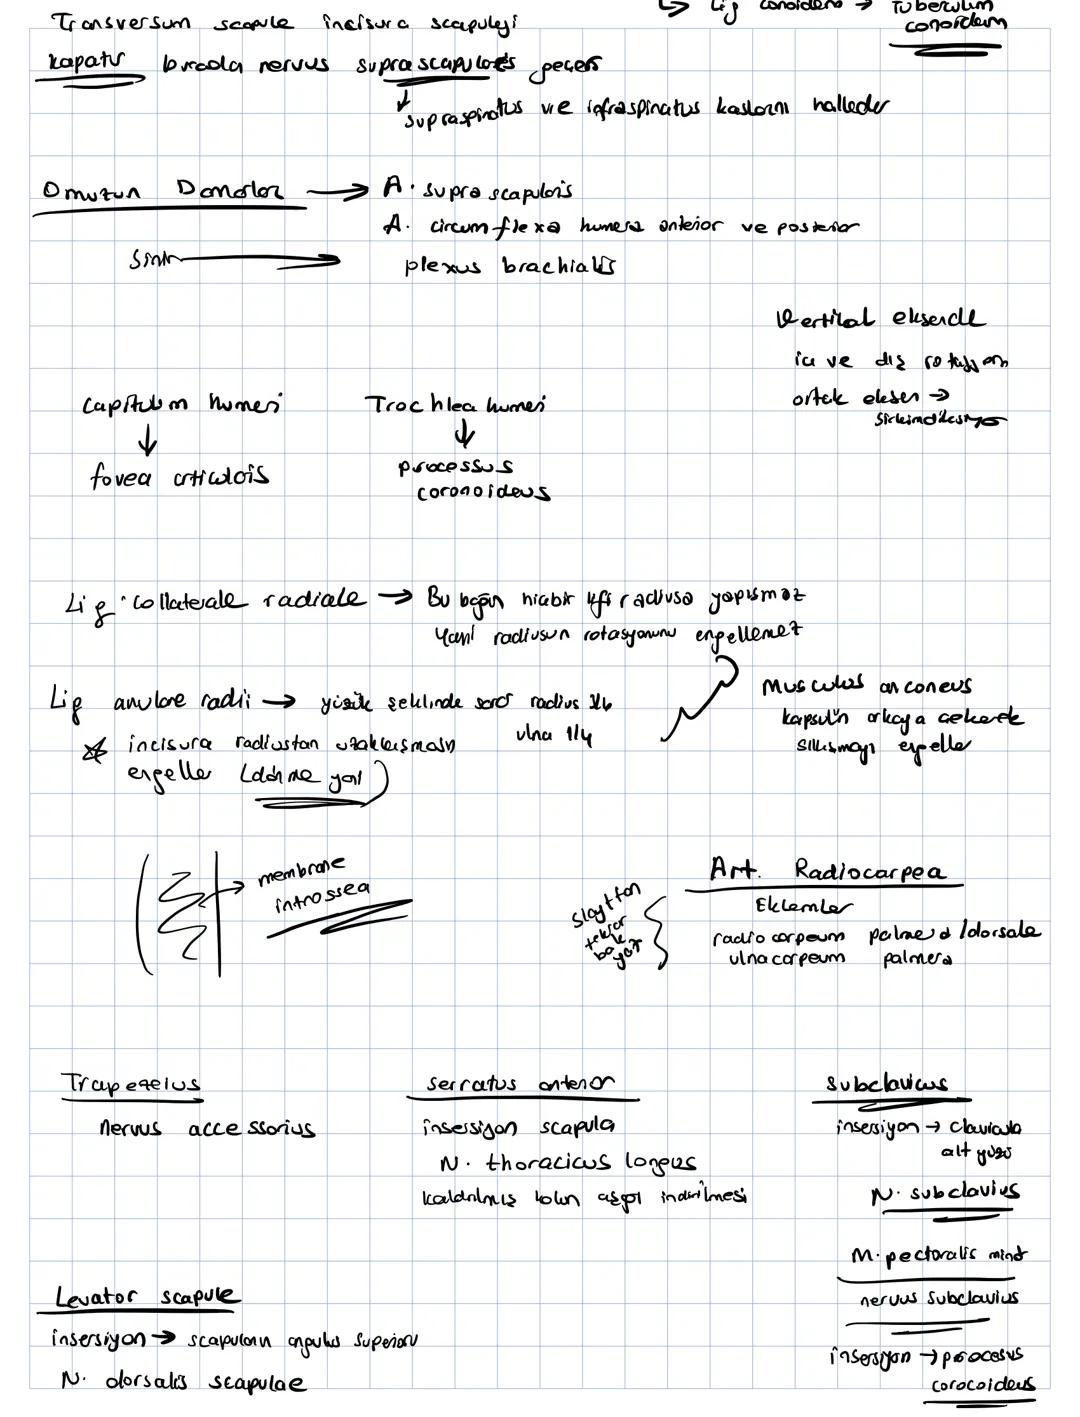 ↳ Lig conoideno → Tuberculum
conoideum
Transversum scapule incisura scapuleyi
kapatır burada nervus suprascapulares geçer
↓ supraspinatus ve infraspinatus kaslarını halleder
Omuzun Damarlar → A. suprascapularis
A. circumflexa humera anterior ve posterior
Sinir → plexus brachialis
Vertikal eksende
iç ve dış rotasyon
ortak eksen →
Sirkümdiksyo
Capitulum humeri
↓
fovea articularis
Trochlea humeri
↓
processus
coronoideus
Lig. collaterale radiale → Bu bağın hiçbir lifi radiusa yapışmaz
Yani radiusun rotasyonunu engellemez
Lig anulare radii → yüzük şeklinde sarar radius 3/4
ulna 1/4
☆ incisura radiustan uzaklaşmasını
engeller (dönme yarı)
Musculus anconeus
kapsulün arkaya çekerek
sıkışmayı engeller
→ membrane
introssea
Art. Radiocarpea
Eklemler
radiocarpeum palmera / dorsale
ulnacarpeum palmera
Slayttan
tekrar
bak
yaz
Trapezeius
nervus accessorius
Serratus anterior
insersiyon scapula
N. thoracicus longus
kaldırılmış kolun aşağı indirilmesi
Subclavicus
insersiyon → clavicula
alt yüzü
N. subclavius
M. pectoralis minör
nervus subclavius
insersiyon → procesus
corocoideus
Levator scapule
insersiyon → scapulanın angulus superioru
N. dorsalis scapulae